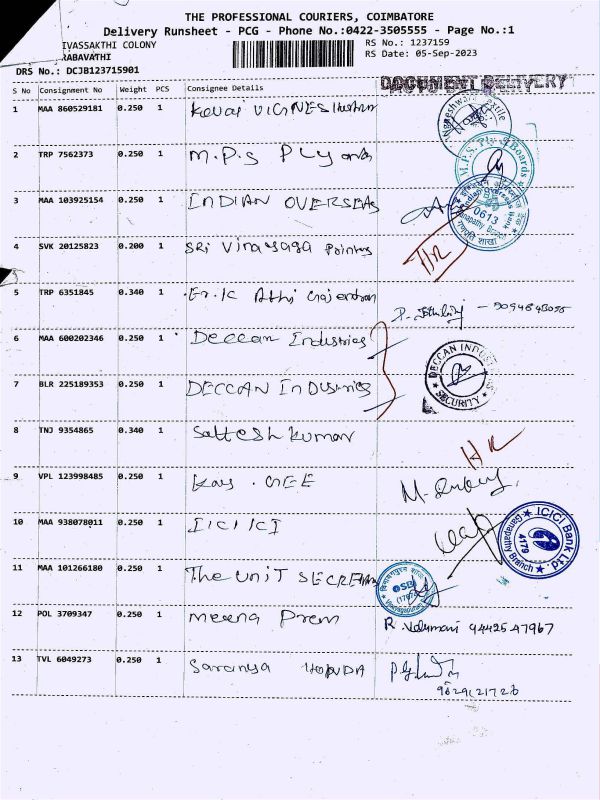 THE PROFESSIONAL COURIERS, COIMBATORE
Delivery Runsheet - PCG - Phone No.:0422-3505555 - Page No.:1
IVASSAKTHI COLONY
RABAVATHI
RS No.: 1237159
RS Date: 05-Sep-2023
DRS No.: DCJB123715901
DOCUMENT DELIVERY
S No Consignment No Weight PCS Consignee Details
1 MAA 860529181 0.250 1 Kovai VIGNESHwara
2 TRP 7562373 0.250 1 M.P.S PLy
M.P.S. Ply & Boards
3 MAA 103925154 0.250 1 INDIAN OVERSEAS
0613
4 SVK 20125823 0.200 1 SRi Vinayaga Printers
5 TRP 6351845 0.340 1 Er. K Athi
6 MAA 600202346 1 Deccan Industries
7 BLR 225189353 0.250 1 DECCAN InDustries
DECCAN INDUSTRIES
SECURITY
8 TNJ 9354865 0.340 1 Sattesh kumar
9 VPL 123998485 0.250 1 Kay . GEE
10 MAA 938078011 0.250 1 ICICI
ICICI Bank Ltd.
4179
Ganapathy Branch
11 MAA 101266180 0.250 1 The UniT SECRETARY
SBI
12 POL 3709347 0.250 1 meena Prem
R. Velumani 94425 47967
13 TVL 6049273 0.250 1 Saranya HONDA